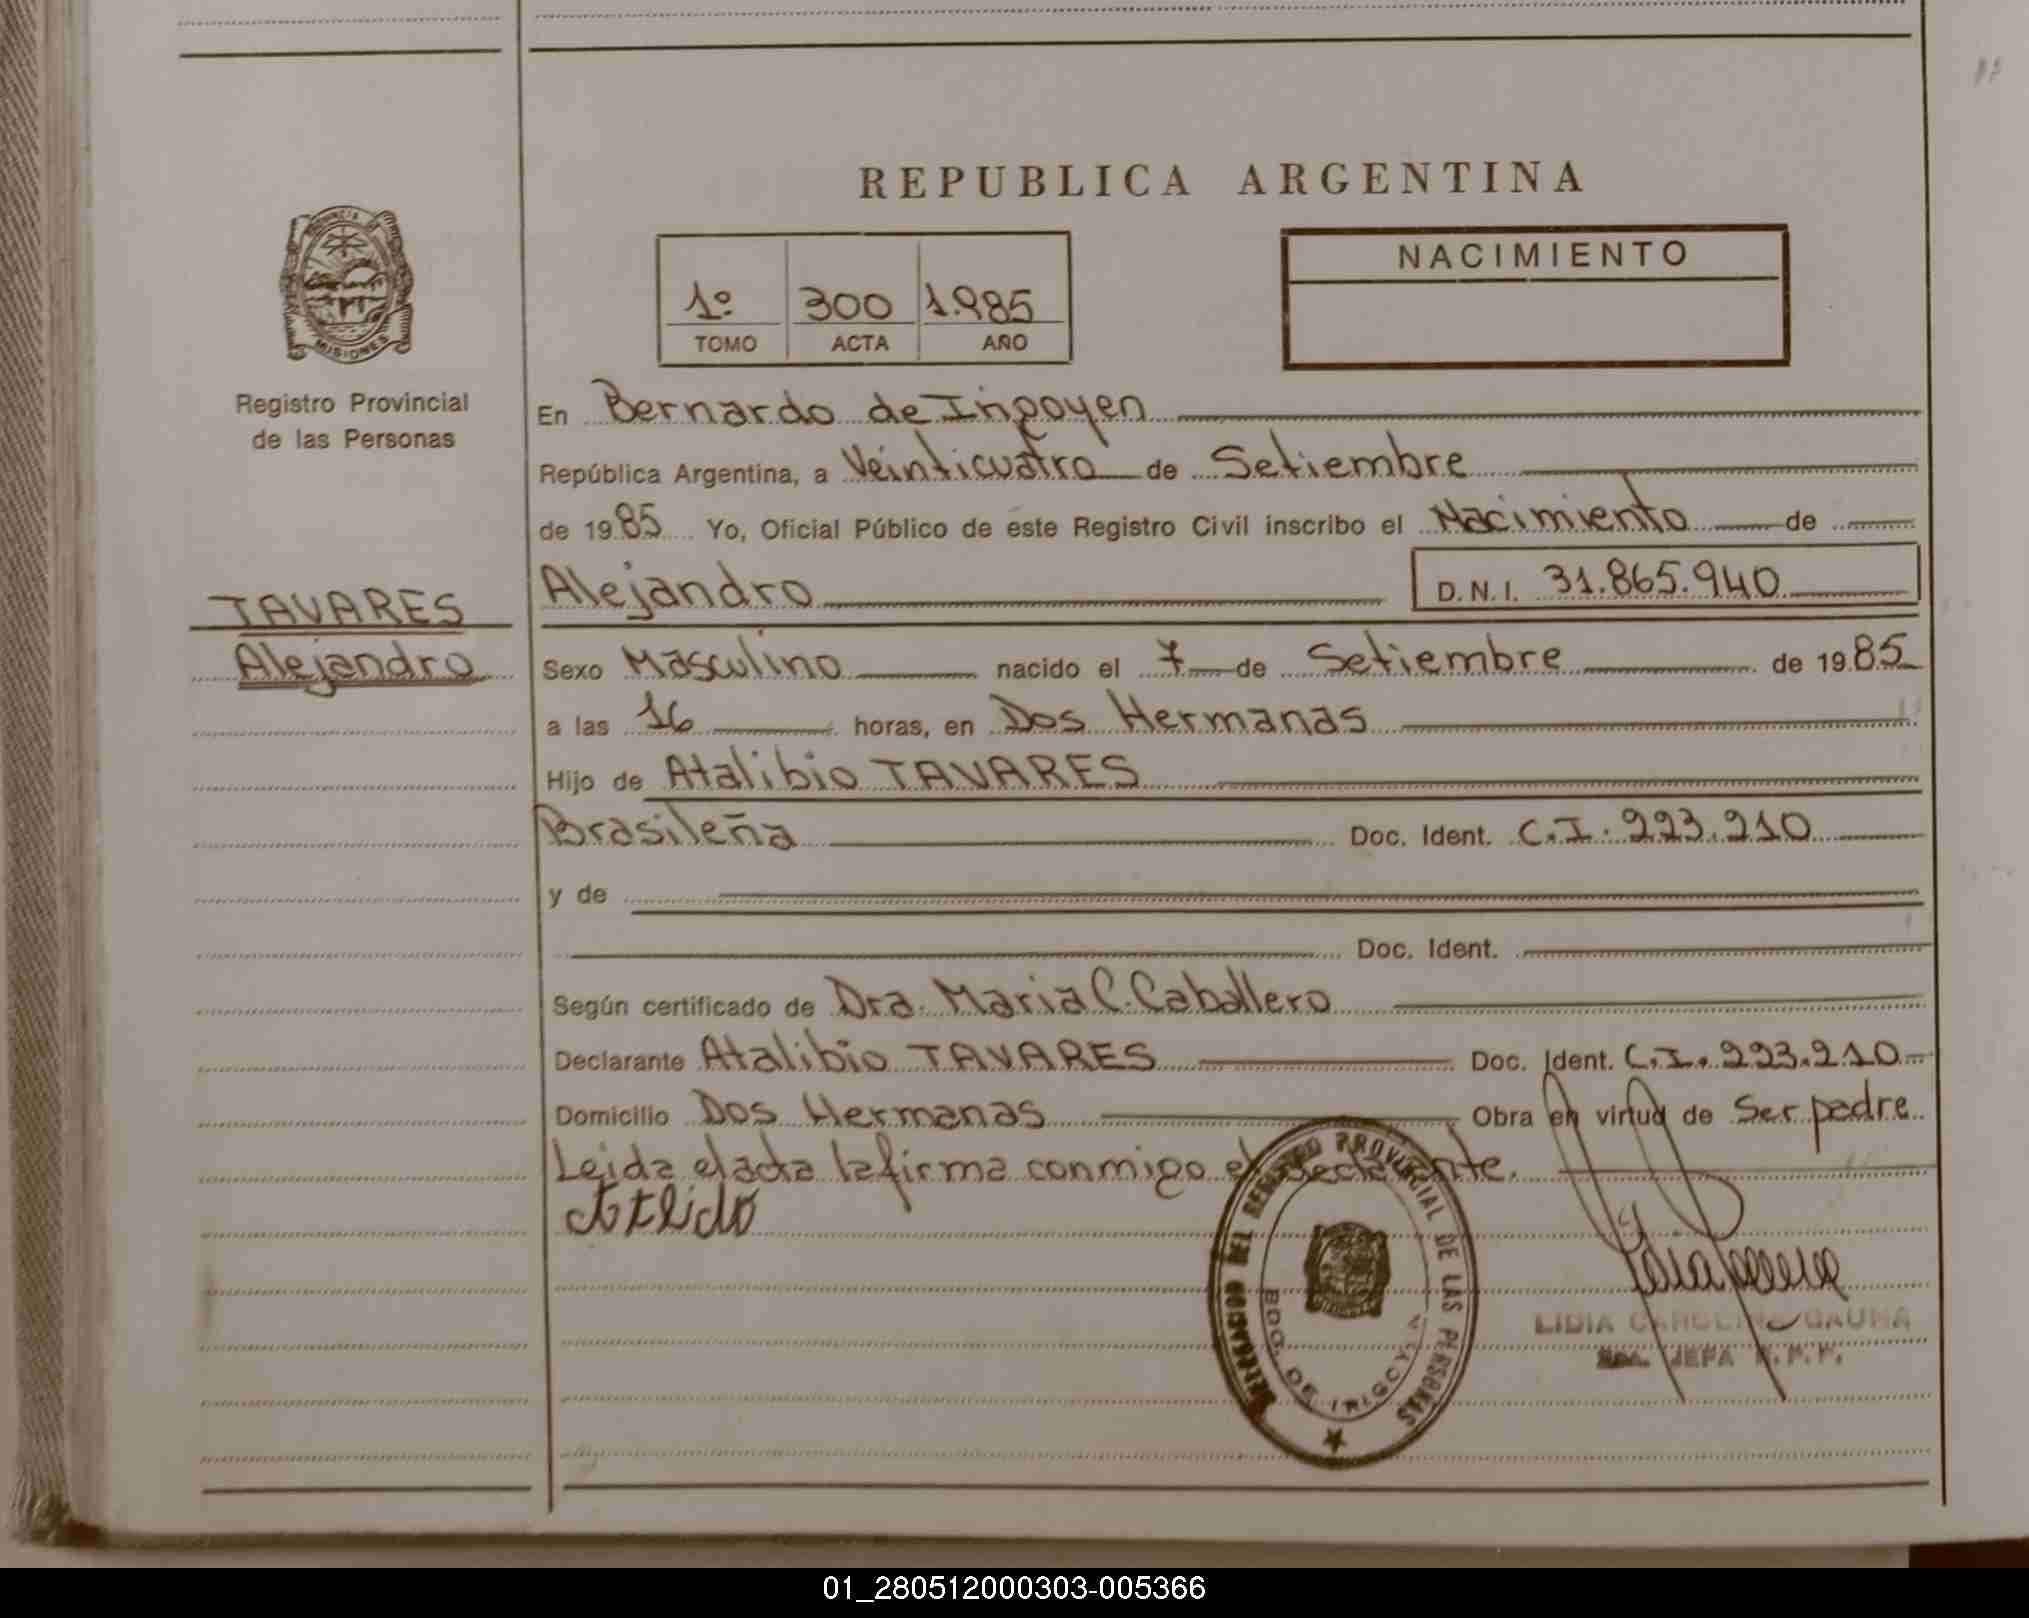 REPUBLICA ARGENTINA
PROVINCIA DE
MISIONES
Registro Provincial
de las Personas
1º 300 1.985
TOMO ACTA AÑO
NACIMIENTO
En Bernardo de Irigoyen
República Argentina, a Veinticuatro de Setiembre
de 1985 Yo, Oficial Público de este Registro Civil inscribo el Nacimiento de
TAVARES
Alejandro
Alejandro D.N.I. 31.865.940
Sexo Masculino nacido el 7 de Setiembre de 1985
a las 16 horas, en Dos Hermanas
Hijo de Atalibio TAVARES
Brasileña Doc. Ident. C.I. 223.210
y de
Doc. Ident.
Según certificado de Dra. Maria C. Caballero
Declarante Atalibio TAVARES Doc. Ident. C.I. 223.210
Domicilio Dos Hermanas Obra en virtud de Ser padre
Leida el acta la firma conmigo el declarante.
DELEGACION DEL REGISTRO PROVINCIAL DE LAS PERSONAS
BDO. DE IRIGOYEN
LIDIA CAROLINA GAUNA
JEFA R.P.P.
01_280512000303-005366